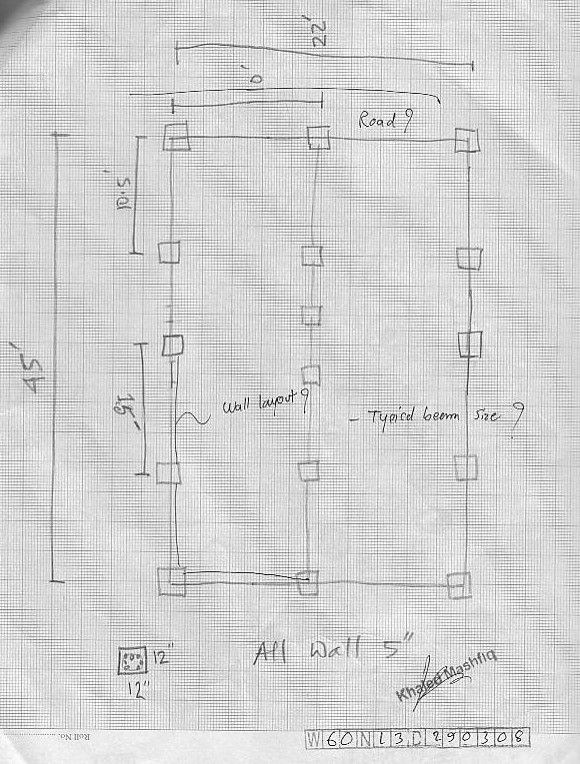 22'
10'
Road ?
10.5'
45'
15'
Wall layout ?
- Typical beam size ?
All Wall 5"
12"
12"
Khaled Mashfiq
Roll No.
W60N13D290308